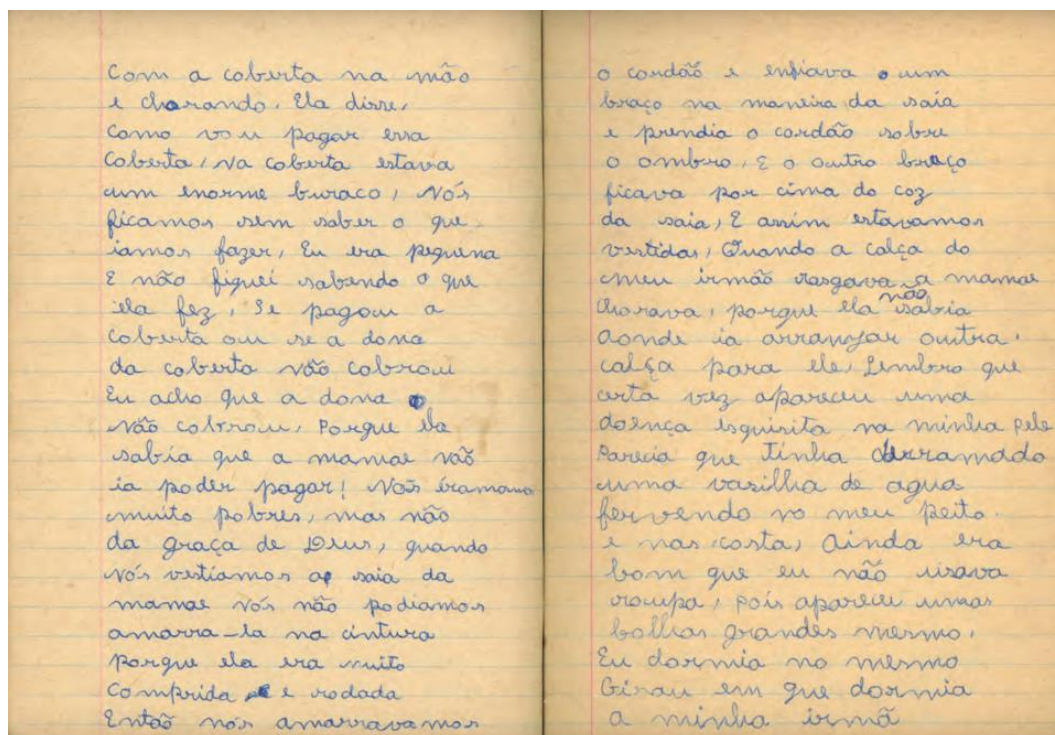 Com a coberta na mão
e chorando. Ela disse,
como vou pagar essa
coberta, na coberta estava
um enorme buraco, Nós
ficamos sem saber o que
iamos fazer, Eu era pequena
E não fiquei sabendo o que
ela fez, Se pagou a
coberta ou se a dona
da coberta não cobrou
Eu acho que a dona
não cobrou, Porque ela
sabia que a mamae não
ia poder pagar! Nós éramama
muito pobres, mas não
da graça de Deus, quando
nós vestiamos a saia da
mamae nós não podiamos
amarra-la na cintura
Porque ela era muito
Comprida e rodada
Então nós amarravamos
o cordão e enfiava o um
braço na maneira da saia
e prendia o cordão sobre
o ombro, E o outro braço
ficava por cima do coz
da saia, E assim estavamos
vestidas, Quando a calça do
meu irmão rasgava a mamae
chorava, porque ela não sabia
aonde ia arranjar outra
calça para ele, Lembro que
certa vez apareceu uma
doença isquisita na minha pele
Parecia que Tinha derramado
uma vasilha de agua
fervendo no meu Peito
e nas costa, Ainda era
bom que eu não usava
roupa, pois apareceu umas
bolhas grandes mesmo,
Eu dormia no mesmo
Girau em que dormia
a minha irmã